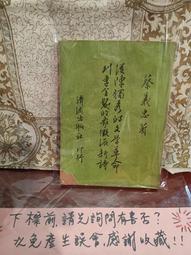 蔡義忠著
從陳獨秀的文學革命
到李金髮的象徵派新詩
清流出版社 印行
下標前請先詢問有書否?
以免產生誤會,感謝收藏!!